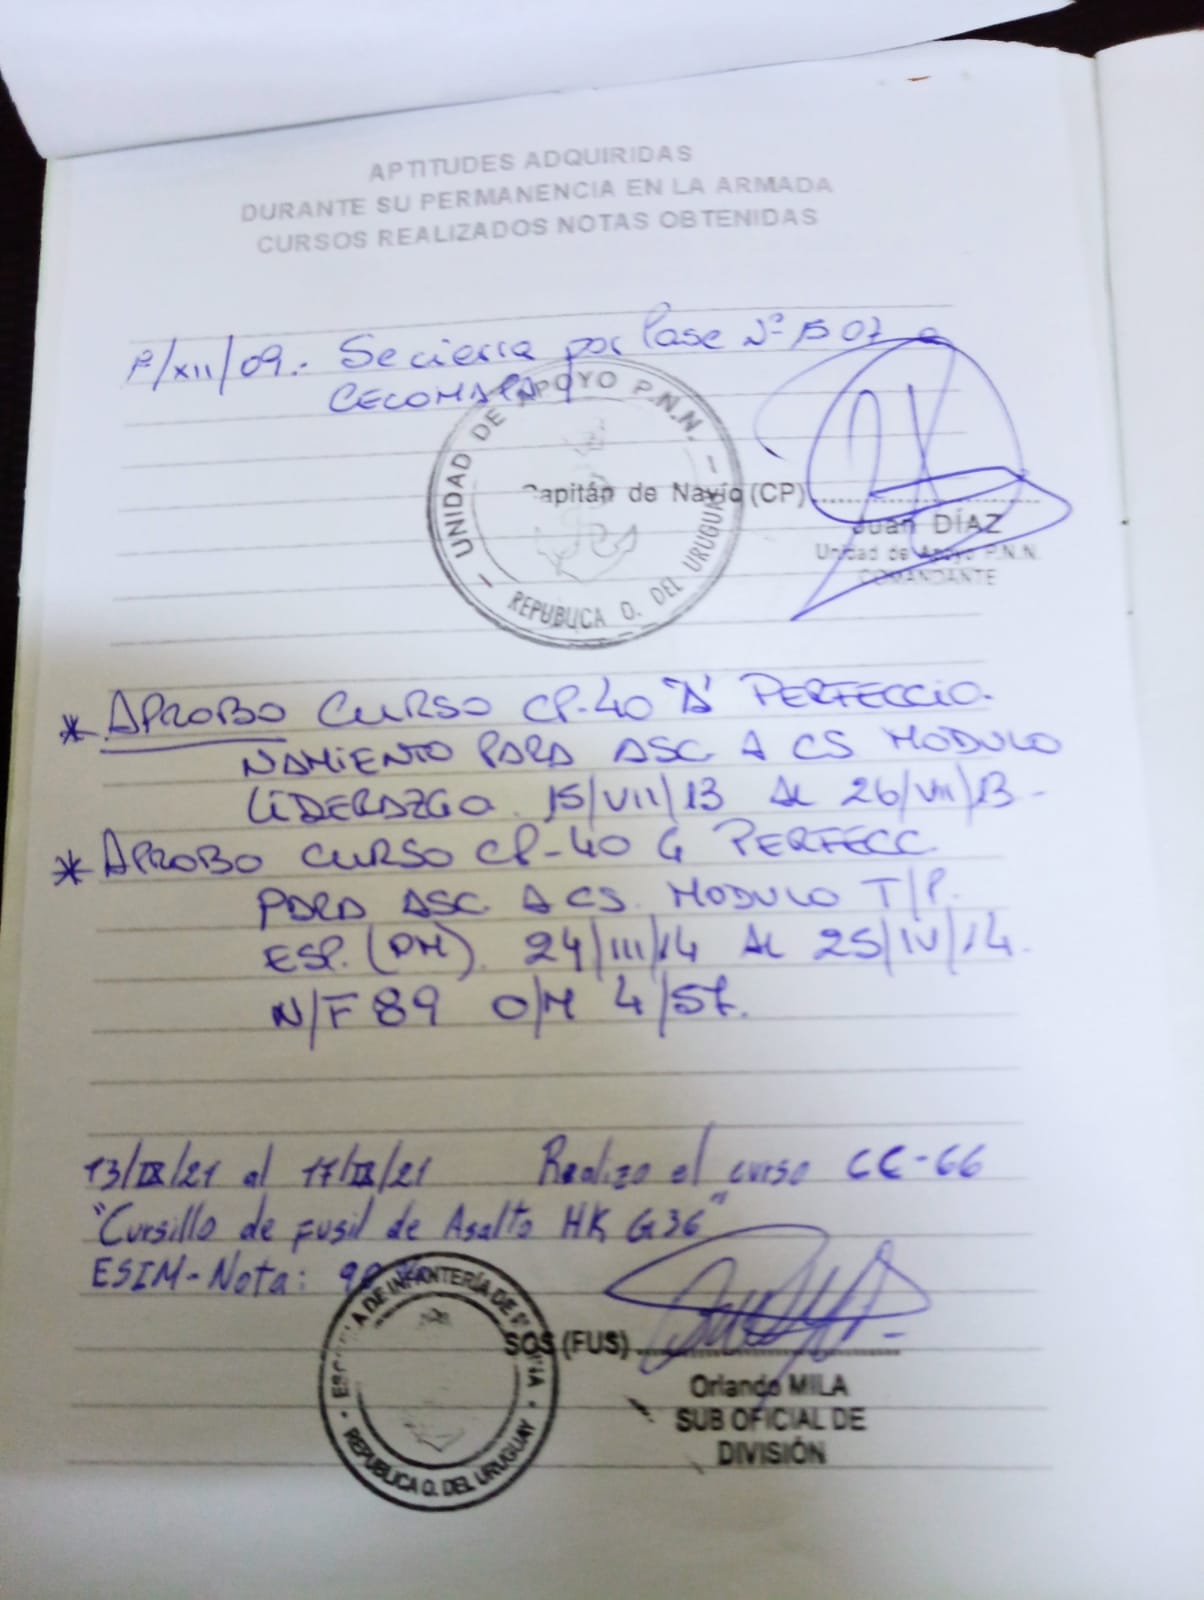 APTITUDES ADQUIRIDAS
DURANTE SU PERMANENCIA EN LA ARMADA
CURSOS REALIZADOS NOTAS OBTENIDAS
/XII/09.- Se cierra por Pase Nº 1507 a
CECOMAPA
UNIDAD DE APOYO P.N.N.
REPUBLICA O. DEL URUGUAY
Capitán de Navío (CP)
Juan DÍAZ
Unidad de Apoyo P.N.N.
COMANDANTE
* APROBO CURSO CP-40 "A" PERFECCIO-
NAMIENTO PARA ASC. A CS MODULO
LIDERAZGO. 15/VII/13 AL 26/VII/13-
* APROBO CURSO CP-40 G PERFECC.
PARA ASC. A CS. MODULO T/P.
ESP. (PM). 24/III/14 AL 25/IV/14.
N/F 89 O/M 4/57.
13/IX/21 al 17/IX/21 Realizo el curso CC-66
"Cursillo de Fusil de Asalto HK G36"
ESIM-Nota:
ESCUELA DE INFANTERÍA DE MARINA
REPUBLICA O. DEL URUGUAY
SOS (FUS)
Orlando MILA
SUB OFICIAL DE
DIVISIÓN